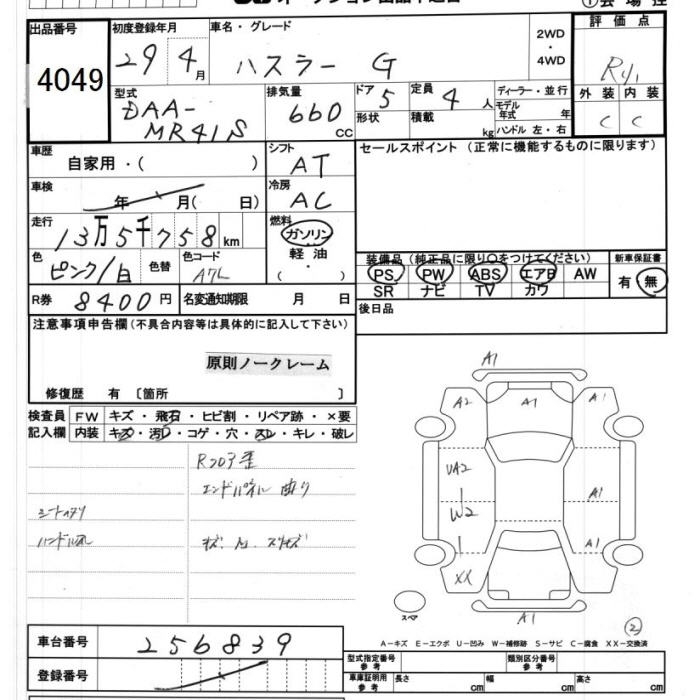 出品番号
4049
初度登録年月
29 4月
車名・グレード
ハスラー G
2WD
・
4WD
評価点
外装 内装
C C
型式
DAA-
MR41S
排気量
660 cc
ドア 5
形状
定員 4 人
積載 kg
ディーラー・並行
モデル
年式 年
ハンドル 左・右
車歴
自家用・( )
シフト
AT
セールスポイント (正常に機能するものに限ります)
車検
年 月( 日)
冷房
AC
走行
13万5千758km
燃料
ガソリン
軽油
・
( )
色
ピンク/白
色替
色コード
A7L
装備品(純正品に限り○をつけてください)
PS PW ABS エアB AW
SR ナビ TV カワ
新車保証書
有 無
R券 8400円
名変通知期限 月 日
後日品
注意事項申告欄(不具合内容等は具体的に記入して下さい)
原則ノークレーム
修復歴 有 〔箇所 〕
検査員
記入欄
FW キズ・飛石・ヒビ割・リペア跡・×要
内装 キズ・汚れ・コゲ・穴・スレ・キレ・破レ
Rフロア歪
エンドパネル 曲り
シートヘタリ
ハンドルスレ
A1
A2 A1 A1
UA2
A1
W2
A1
XX
スペア
A1
②
A-キズ E-エクボ U-凹み W-補修跡 S-サビ C-腐食 XX-交換済
車台番号 256839
登録番号
型式指定番号
参考
類別区分番号
参考
車庫証明用
参考
長さ cm 幅 cm 高さ cm